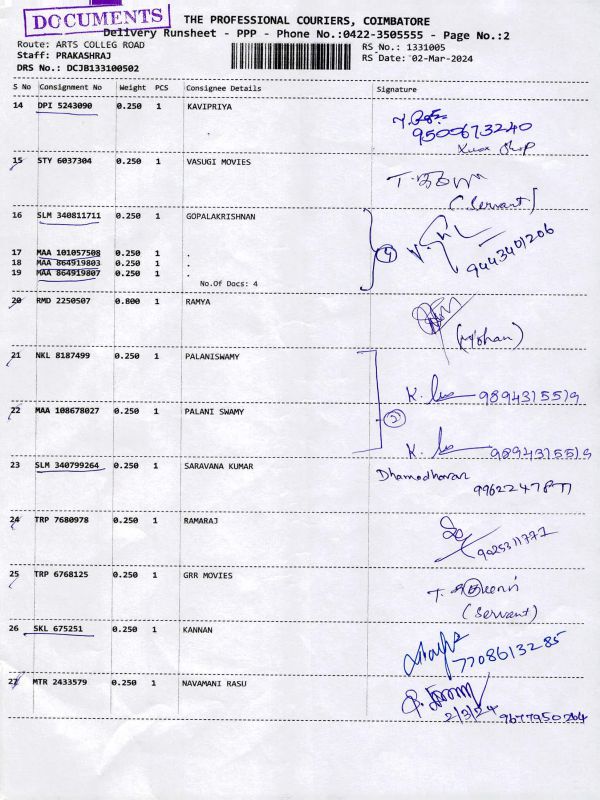 DOCUMENTS
THE PROFESSIONAL COURIERS, COIMBATORE
Delivery Runsheet - PPP - Phone No.:0422-3505555 - Page No.:2
Route: ARTS COLLEG ROAD
RS No.: 1331005
Staff: PRAKASHRAJ
RS Date: 02-Mar-2024
DRS No.: DCJB133100502
S No Consignment No Weight PCS Consignee Details Signature
14 DPI 5243090 0.250 1 KAVIPRIYA
9500673240
Xerox Shop
15 STY 6037304 0.250 1 VASUGI MOVIES
(Servant)
16 SLM 340811711 0.250 1 GOPALAKRISHNAN
17 MAA 101057508 0.250 1 .
18 MAA 864919803 0.250 1 .
19 MAA 864919807 0.250 1 .
No.Of Docs: 4
4
9443401206
20 RMD 2250507 0.800 1 RAMYA
(Mohan)
21 NKL 8187499 0.250 1 PALANISWAMY
9894315519
22 MAA 108678027 0.250 1 PALANI SWAMY
2
9894315519
23 SLM 340799264 0.250 1 SARAVANA KUMAR
Dhamodharan
24 TRP 7680978 0.250 1 RAMARAJ
9025311771
25 TRP 6768125 0.250 1 GRR MOVIES
(Servant)
26 SKL 675251 0.250 1 KANNAN
7708613285
27 MTR 2433579 0.250 1 NAVAMANI RASU
2/3/24 9677950264